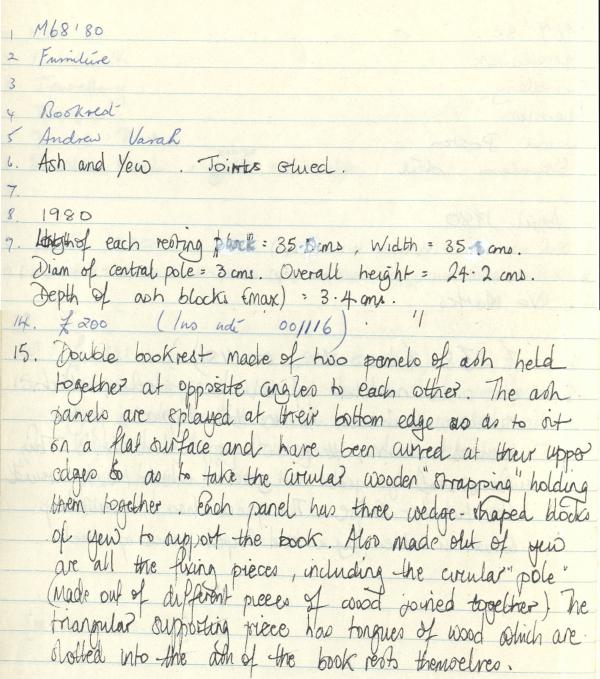 1 M68'80
2 Furniture
3
4 Bookrest
5 Andrew Varah
6. Ash and Yew. Joints Glued.
7.
8. 1980
9. Length of each resting block = 35.5 cms, Width = 35 cms.
Diam of central pole = 3 cms. Overall height = 24.2 cms.
Depth of ash blocks (max) = 3.4 cms.
14. £200 (Ins val 00/116)
15. Double bookrest made of two panels of ash held
together at opposite angles to each other. The ash
panels are splayed at their bottom edge so as to sit
on a flat surface and have been curved at their upper
edges so as to take the circular wooden "strapping" holding
them together. Each panel has three wedge-shaped blocks
of yew to support the book. Also made out of yew
are all the fixing pieces, including the circular "pole"
(made out of different pieces of wood joined together) The
triangular supporting piece has tongues of wood which are
slotted into the ash of the book rests themselves.